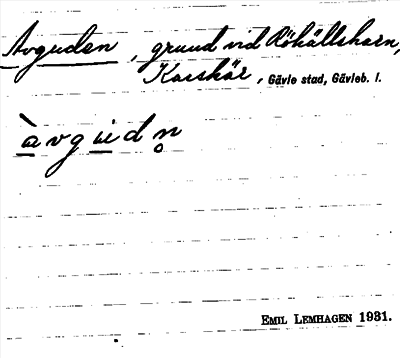 Avguden, grund vid Röhällsharn,
Karskär, Gävle stad, Gävleb. l.
àvgud̥n
EMIL LEMHAGEN 1931.